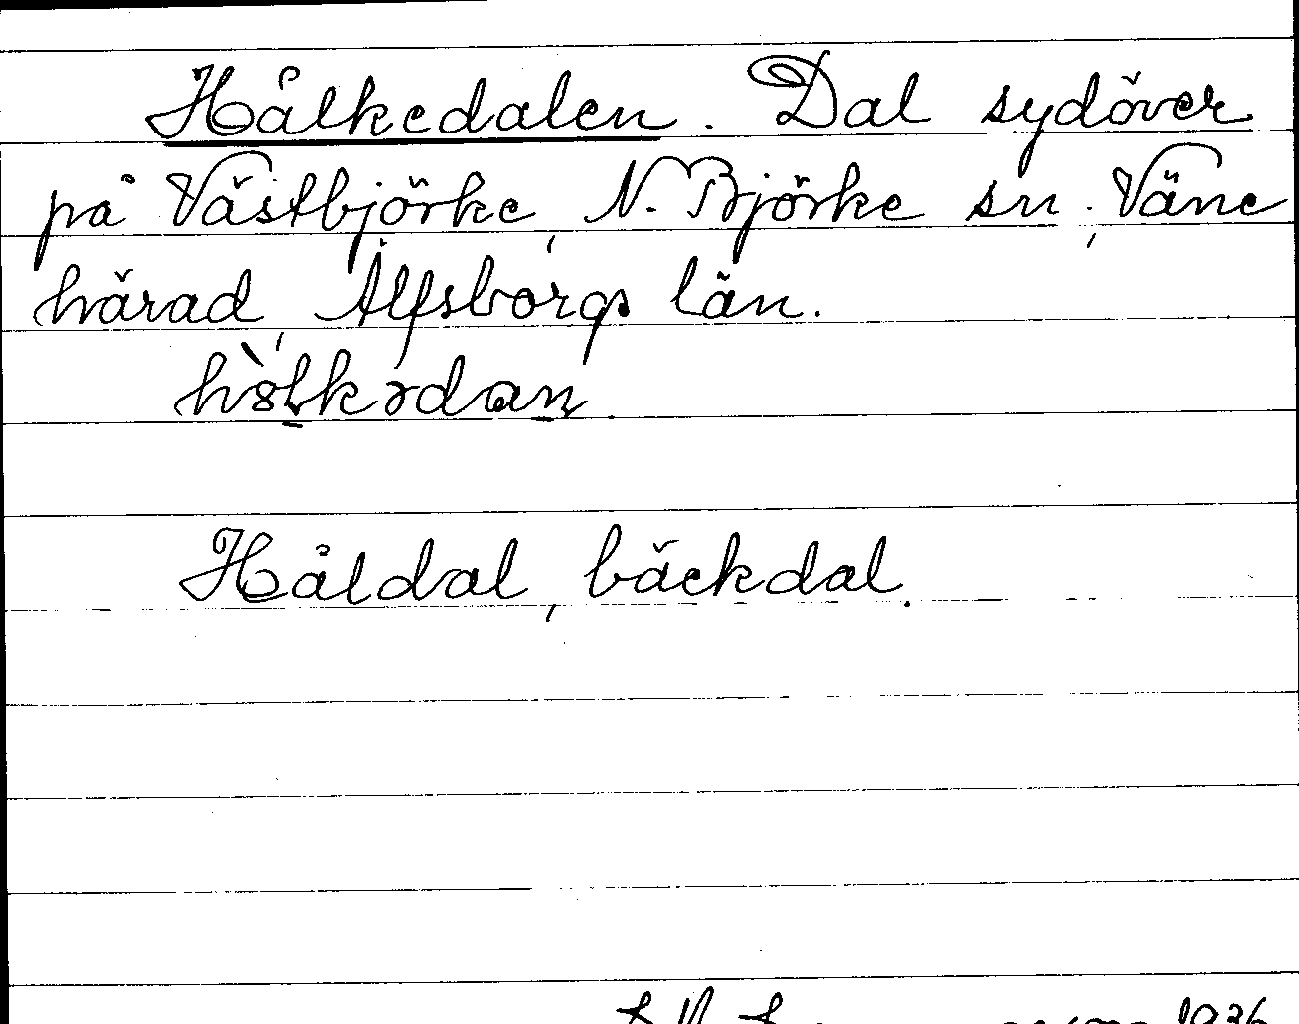 Hålkedalen. Dal sydöver
på Västbjörke, N. Björke sn., Väne
härad, Älfsborgs län.
Håldal, bäckdal.
1936